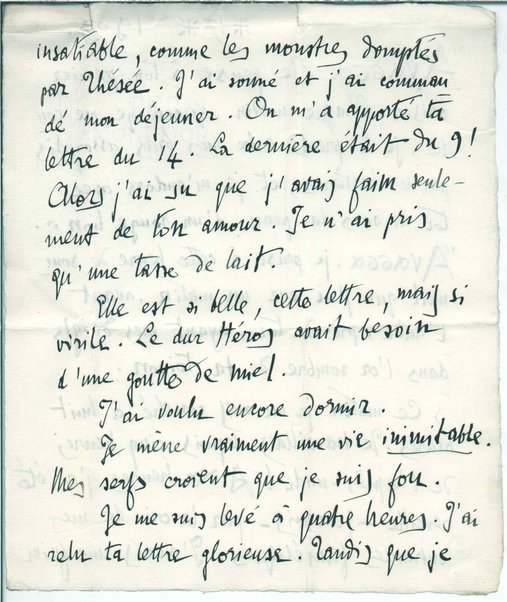 insatiable, comme les monstres domptés
par Thésée. J'ai sonné et j'ai comman
dé mon déjeuner. On m'a apporté ta
lettre du 14. La dernière était du 9!
Alors j'ai su que j'avais faim seule-
ment de ton amour. Je n'ai pris
qu'une tasse de lait.
Elle est si belle, cette lettre, mais si
virile. Le dur Héros avait besoin
d'une goutte de miel.
J'ai voulu encore dormir.
Je mène vraiment une vie inimitable.
Mes serfs croient que je suis fou.
Je me suis levé à quatre heures. J'ai
relu ta lettre glorieuse tandis que je